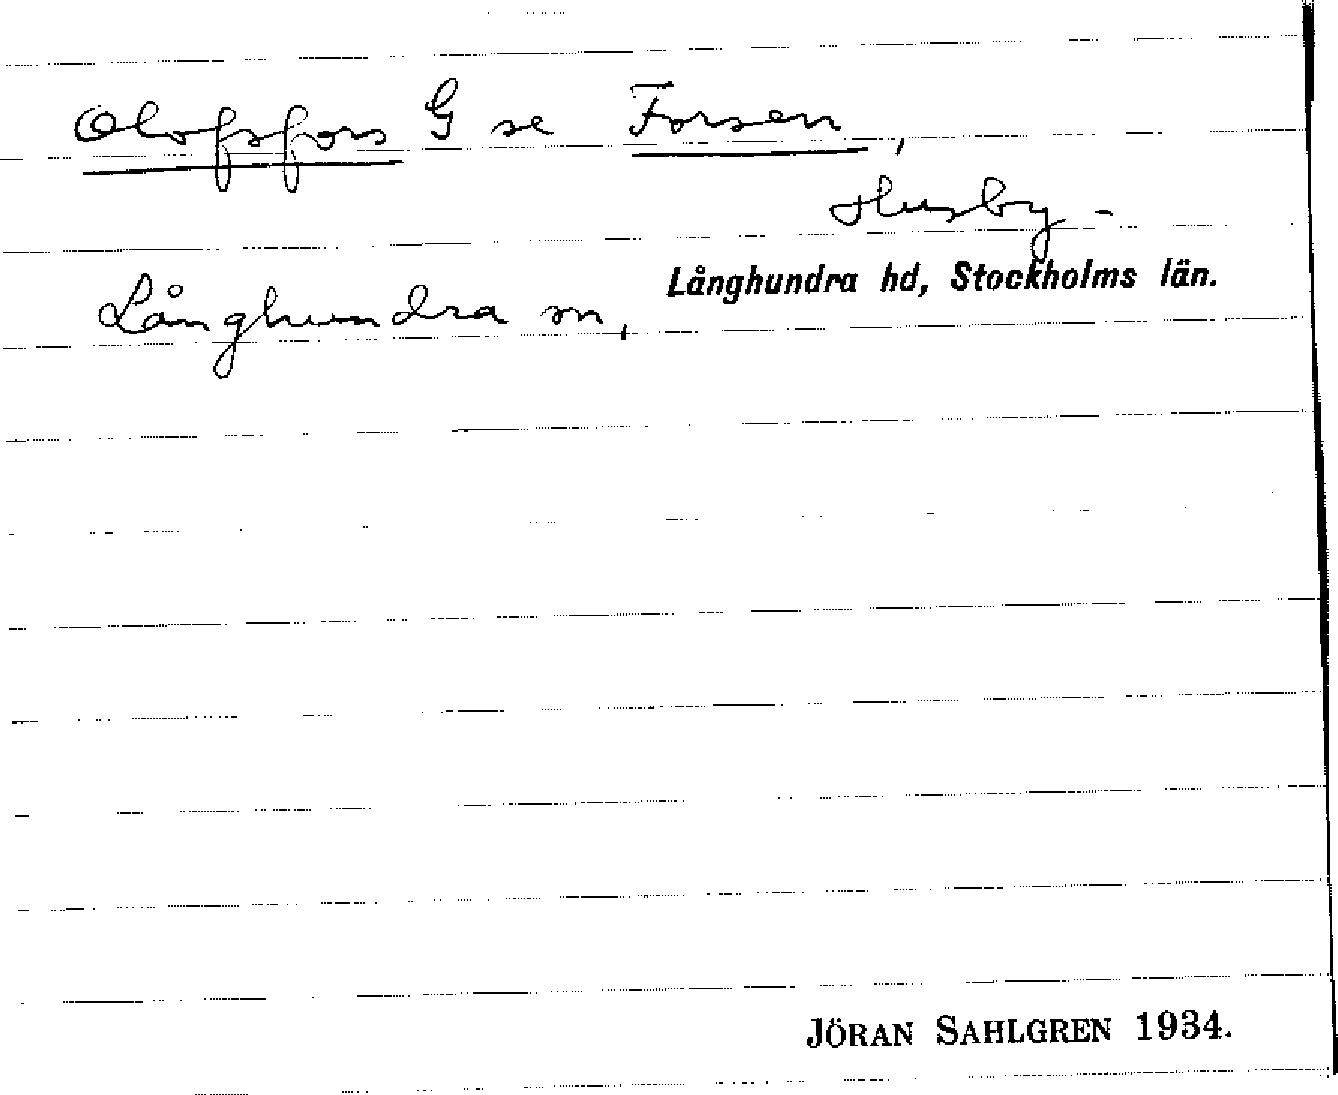 Olofsfors G se Forsen,
Husby-
Långhundra sn,
Långhundra hd, Stockholms län.
JÖRAN SAHLGREN 1934.